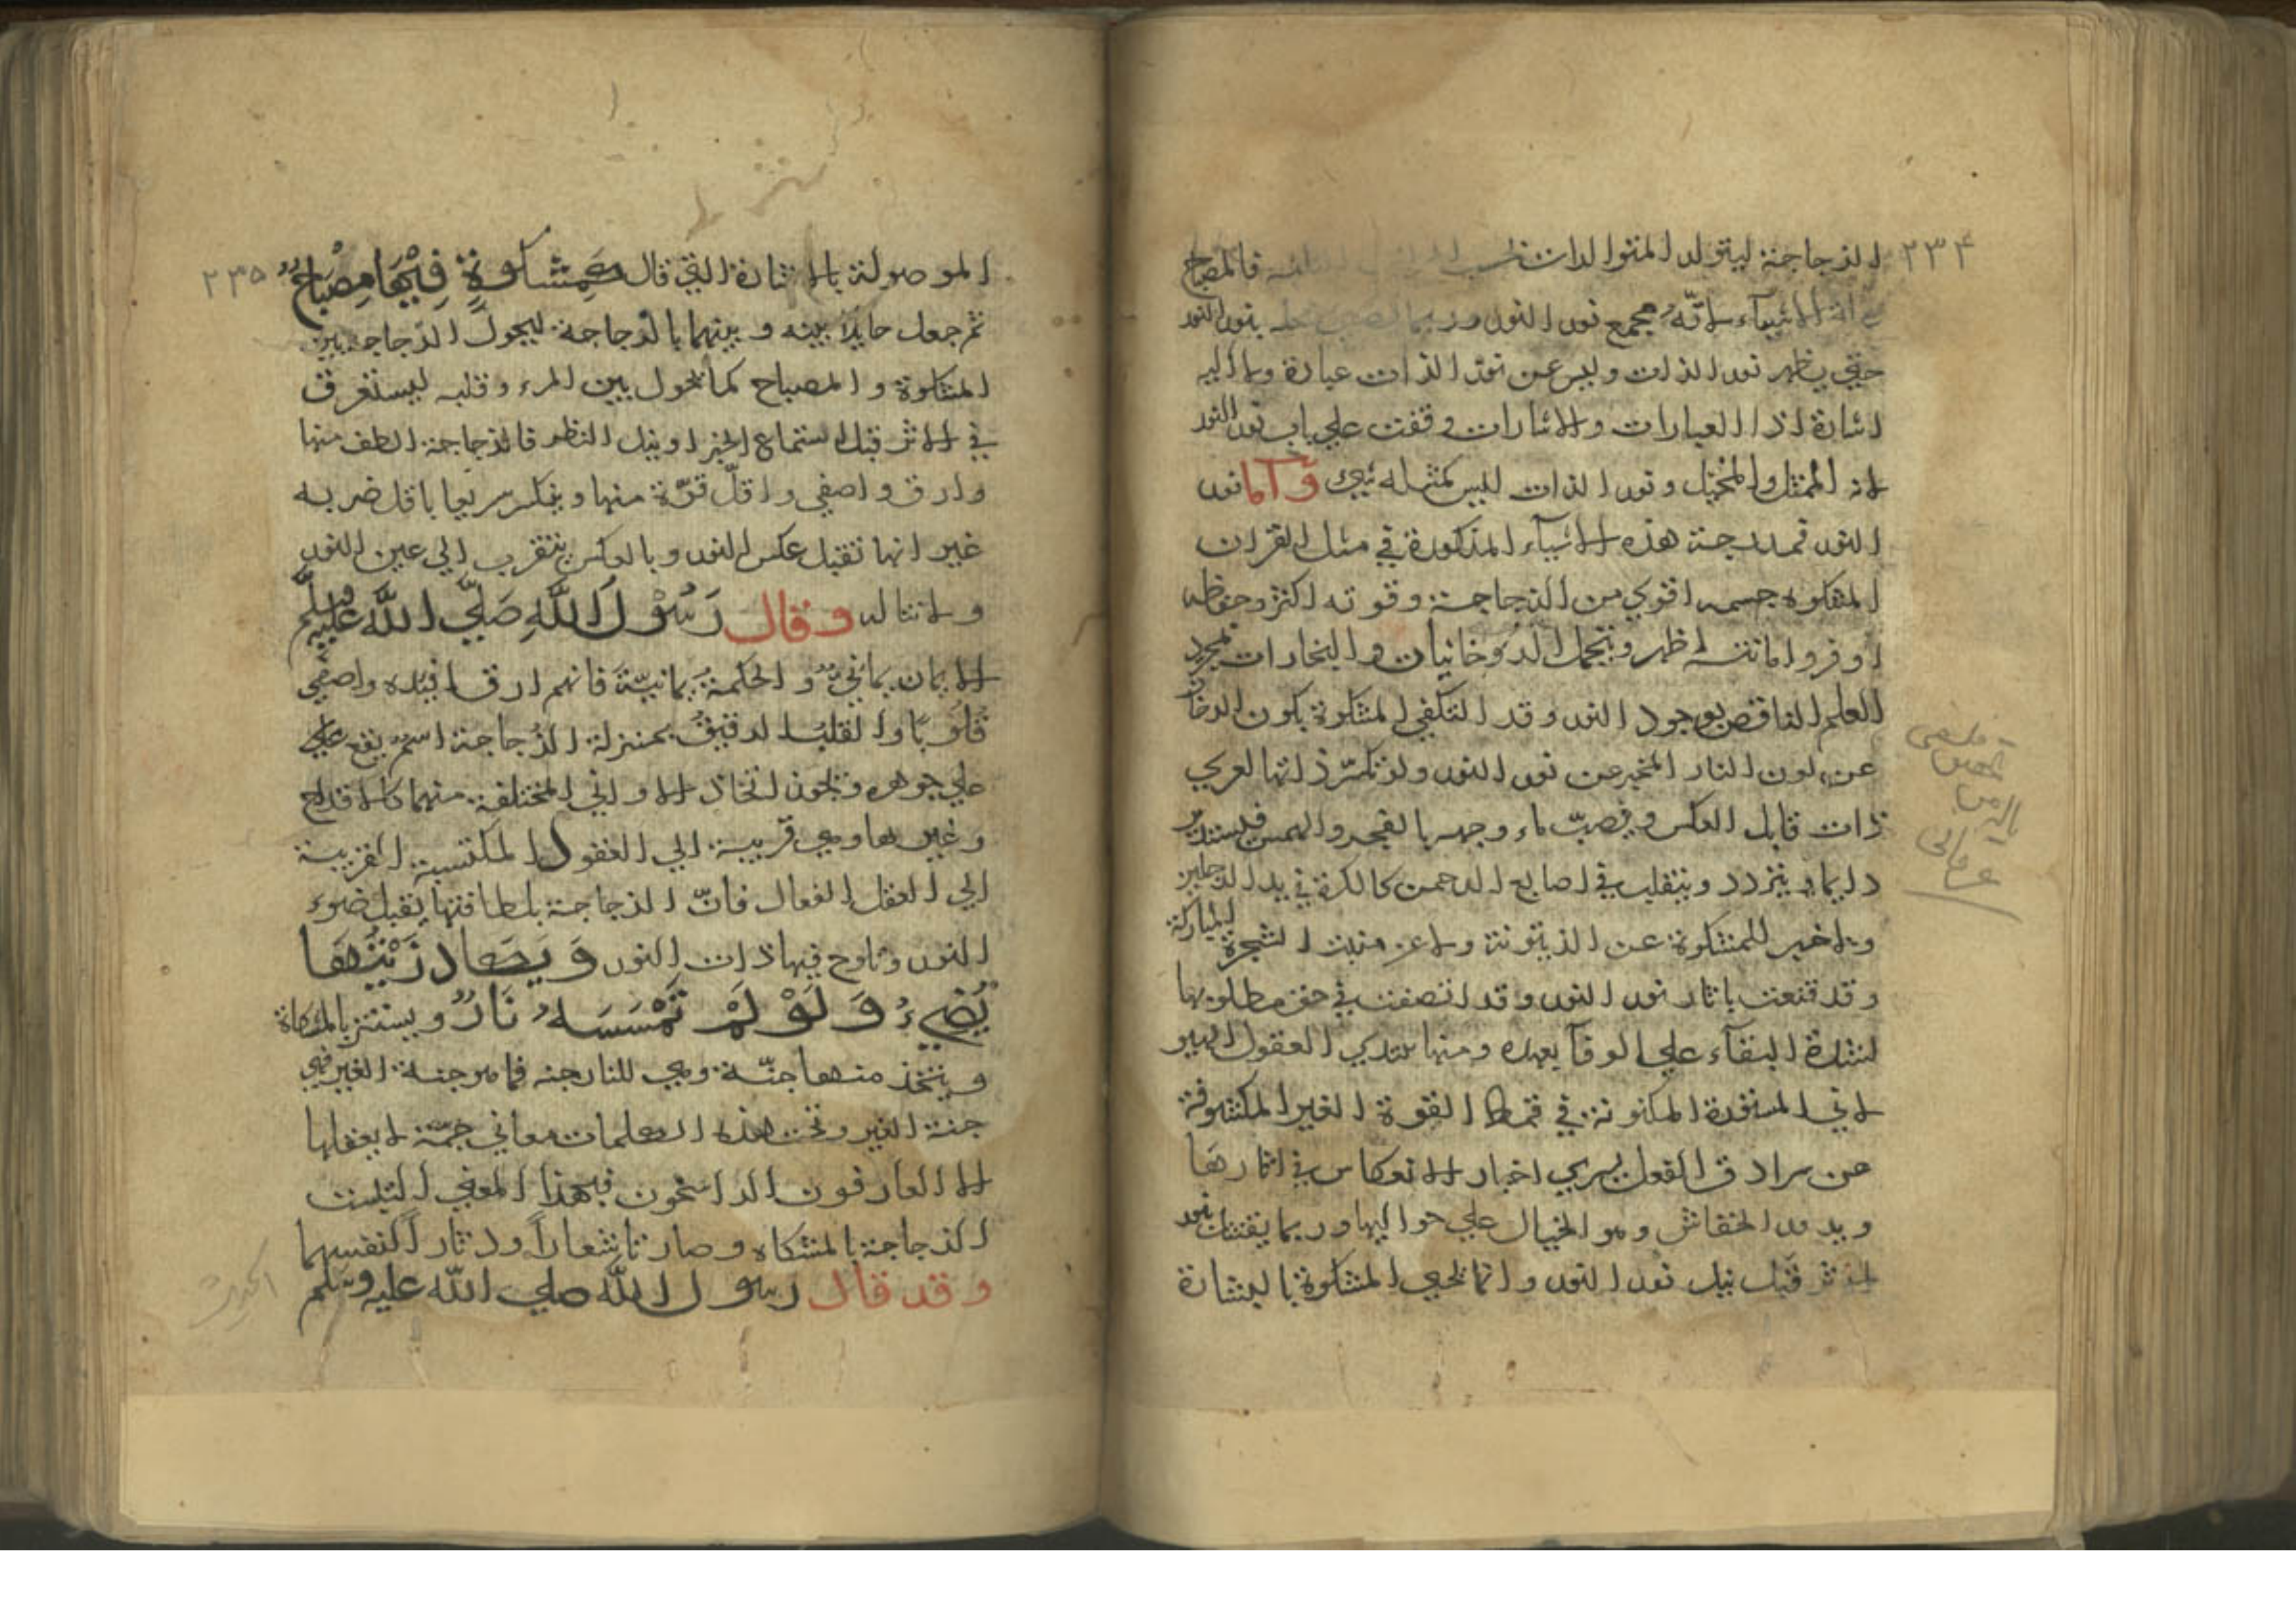 ٢٣٤
الزجاجة ليتولد المتوالدات فالمصباح
الاشياء لانّه مجمع نور النور وربما بنور النور
حتي يظهر نور الذات وليس عن نور الذات عبارة ولا اليه
اشارة اذا العبارات والاشارات وقفت علي باب نور النور
لانه الممثل والمخيل ونور الذات ليس كمثله شيء وأما نور
النور فمدرجة هذه الاشياء المذكورة في مثل القران
المشكوة جسمه اقوي من الزجاجة وقوته اكثر وحفظه
اوفر وامانته اظهر وتحمل الدوخانيات والبخارات بمجرد
العلم الناقص بوجود النور وقد اكتفي المشكوة بكون الدخان
عن لون النار المخبر عن نور النور ولو تكسّر زانها لعري
ذات قابل العكس وقصبّ ماء وجهه بالفجر والهمس فيستدير
دايما ويتردد ويتقلب في اصابع الرحمن كالكرة في يد اللاعبين
ولا خبر للمشكوة عن الزيتونة ولا عن منبت الشجرة المباركة
وقد قنعت باثار نور النور وقد اتصفت في حق مطلوبها
لشدة البقاء علي الوفا بعهده ومنها تبتدي العقول الهيو
لاني المستعدة المكنونة في قماط القوة الغير المكشوفة
عن سرادق الفعل ليري اخبار الانعكاس في اثارها
ويدور الخفاش وهو الخيال علي حواليها وربما يقتبسان بنور
الاثر قبل نيل نور النور وانما نحي المشكوة بالبشارة
٢٣٥
الموصولة بالاشارة التي قال كَمِشكوةٍ فِيْهَا مِصْبَاحٌ
ثم جعل حايلا بينه وبينهما بالزجاجة ليحول الزجاجة بين
المشكوة والمصباح كما يحول بين المرء وقلبه ليستغرق
في الاثر قبل استماع الخبر او نيل النظر فالزجاجة الطف منها
وارق واصفي واقلّ قوّة منها وينكسر سريعا باقل ضربه
غير انها تقبل عكس النور وبالعكس يتقرب الي عين النور
ولا تناله وقال رَسُوْلُ اللَّهِ صَلَّي اللَّه عَلَيْهِ وسلّم
الايمان يمانيٌّ والحكمة يمانيّة فانهم ارق افئده واصفي
قلوبًا والقلب الرقيق بمنزلة الزجاجة اسم يقع علي
علي جوهره ويجوز اتخاذ الاواني المختلفة منها كالاقداح
وغيرها وهي قريبة الي العقول المكتسبة القريبة
الي العقل الفعال فانّ الزجاجة بلطافتها يقبل ضوء
النور وتلوح فيها ذات النور وَيَكاد زَيْتُهَا
يُضِيءُ وَلَوْ لَمْ تَمْسَسهُ نَارٌ ويستتر بالمشكاة
ويتخذ منها جنّة وهي للنار جنه فما هو جنة الغير فهي
جنة الغير وتحت هذه الكلمات معاني جمّة لا يعقلها
الا العارفون الراسخون فبهذا المعني التبست
الزجاجة بالمشكاه وصارتا شعاراً ودثاراً لنفسهما
وقد قال رسول اللّه صلي اللّه عليه وسلم
الحديث